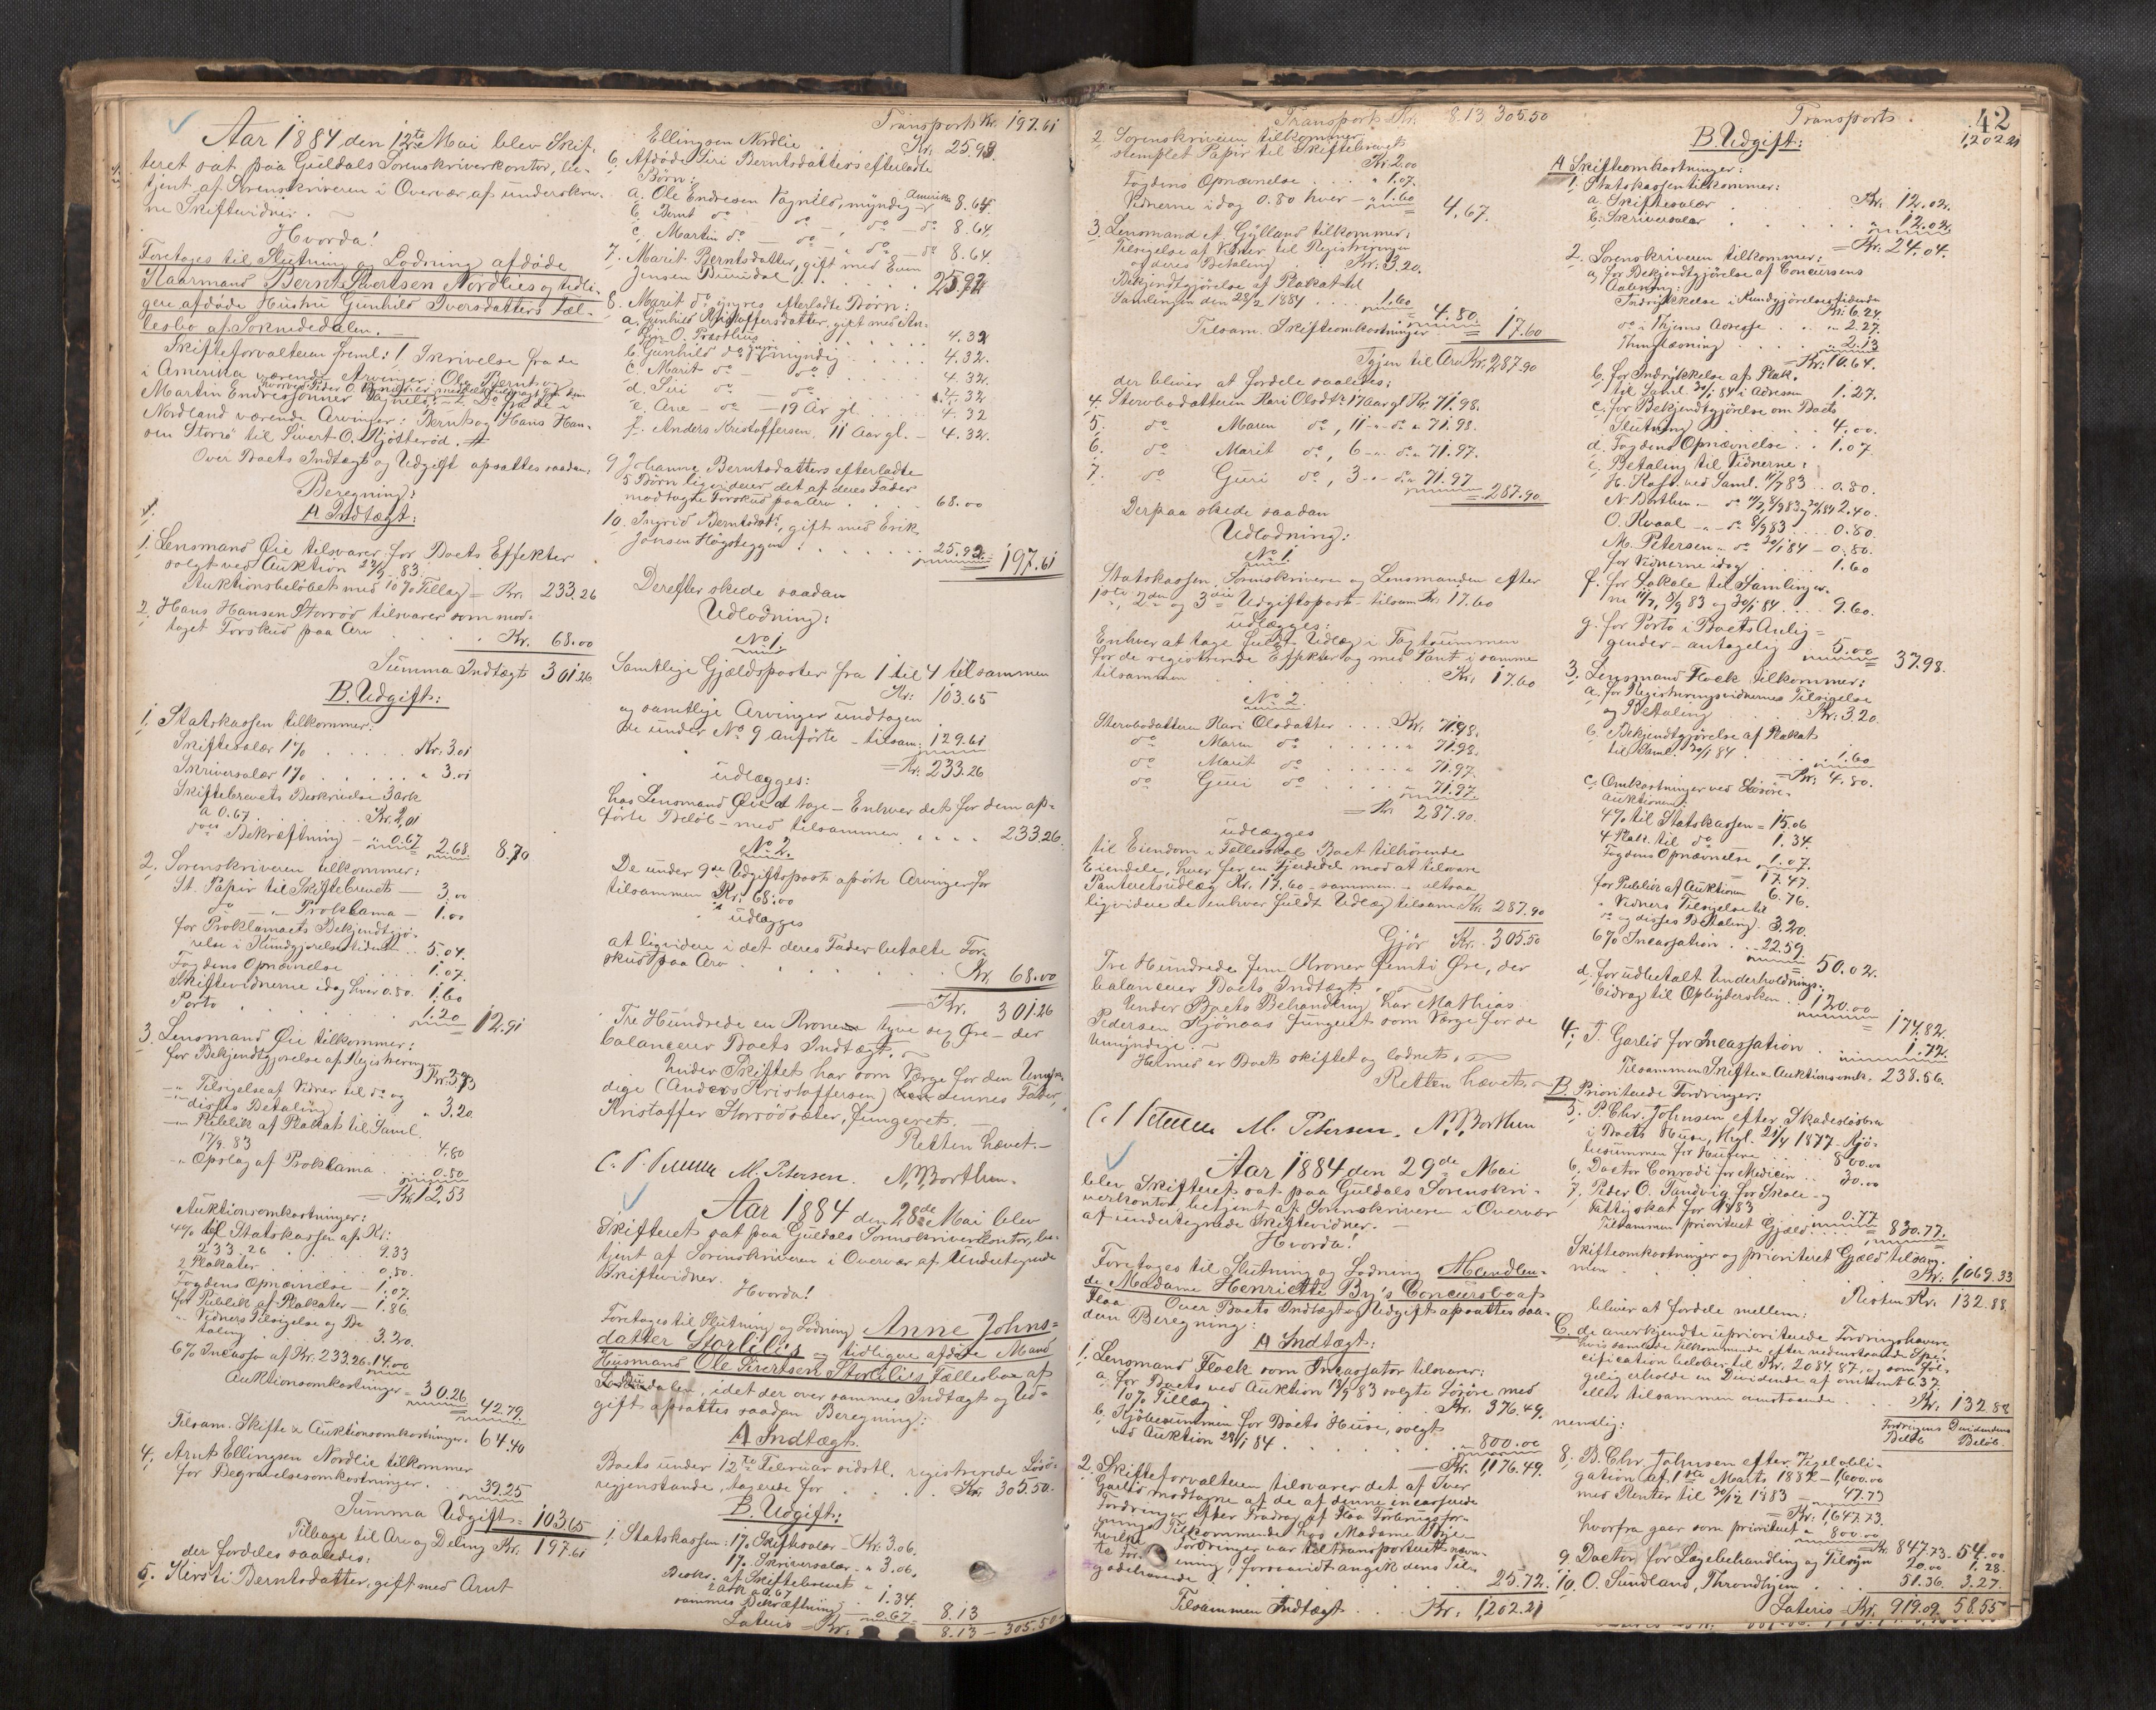 Aar 1884 den 12te Mai blev Skif-
teret sat paa Guldals Sorenskriverkontor, be-
tjent af Sorenskriveren i Overvær af underskrev-
ne Skiftevidner. —
Hvorda!
Foretoges til Slutning og Lodning afdøde
Kaarmand Bernt Sivertsen Nordlies og tidli-
gere afdøde Hustru Gunhild Iversdatters Fæl-
lesbo af Soknedalen. —
Skifteforvalteren freml: 1, Skrivelse fra de
i Amerika værende Arvinger: Ole, Bernt og
Martin Endressønner Vagnild,
Nordland værende Arvinger: Bernt og Hans Han-
sen Storrø til Sivert O. Kjøtterød.
Over Boets Indtægt og Udgift opsattes saadan:
Beregning:
A Indtægt:
1. Lensmand Øie tilsvarer for Boets Effekter
solgt ved Auktion 22/9 83.
Auktionsbeløbet med 10% Tillæg = Kr. 233.26
2. Hans Hansen Storrød tilsvarer som mod-
taget Forskud paa Arv . . . Kr. 68.00
Summa Indtægt 301.26
B. Udgift:
1. Statskassen tilkommer:
Skiftesalær 1% . . . . . Kr. 3.01
Skriversalær 1% . . . . . " 3.01
Skiftebrevets Beskrivelse 3 ark
a 0.67 . . . . . Kr. 2,01
dets Bekræftning — " 0.67 2.68 8.70
2. Sorenskriveren tilkommer:
St. Papir til Skiftebrevet — 3.00
do — " — Proklama — 1.00
for Proklamaets Bekjendtgjø-
relse i Kundgjørelsestidende . . 5.04.
Fogdens Opnævnelse . . . . 1.07.
Skiftevidnerne idag hver 0.80. 1.60
Porto . . . . . 1.20 = 12.91
3. Lensmand Øie tilkommer:
for Bekjendtgjørelse af Registreringen Kr. 3.73
—"— Tilsigelse af Vidner til do og
disses Betaling . . . " 3.20
—"— Publik. af Plakat til Saml.
17/9 83 . . . . 4.80
" Opslag af Proklama . . . 0.80
= Kr. 12,53
Auktionsomkostninger:
4% til Statskassen af Kr:
233.26 . . . . 9.33
2 Plakater . . . . 0.80.
Fogdens Opnævnelse — 1.07.
for Publik af Plakater — 1.86.
" Vidners Tilsigelse og Be
taling . . . . 3.20.
6% Incasso af Kr. 233.26 = 14.00
Auktionsomkostninger = 30.26
= 42.79.
Tilsam. Skifte & Auktionsomkostninger = 64.40
4. Arnt Ellingsen Nordlie tilkommer
for Begravelsesomkostninger. . . 39.25
Summa Udgift = 103.65
Tilbage til Arv og Deling Kr. 197.61
der fordeles saaledes:
5. Kirsti Berntsdatter, gift med Arnt
Transport Kr. 197.61
Ellingsen Nordlie . . . Kr. 25.93.
6. Afdøde Siri Berntsdatters efterladte
Børn:
a. Ole Endresen Vagnild, myndig — Amerika 8.64.
b. Bernt do — do — do 8.64.
c. Martin do — do — do — do 8.64.
7. Marit Berntsdatter, gift med Even
Jensen Buundal . . . . 25.92
8. Marit do yngres efterladte Børn:
a. Gunhild Kristoffersdatter, gift med An-
O. Præsthus . . . . 4.32
b. Gunhild do yngre myndig . . . . 4.32.
c. Marit do — do — . . . . 4.32.
d. Siri do — do — . . . . 4.32.
e. Ane — do — 19 Aar gl. . . 4.32
f. Anders Kristoffersen, 11 Aar gl. — 4.32.
9. Johanne Berntsdatters efterladte
5 Børn ligviderer det af deres Fader
modtagne Forskud paa Arv . . . 68.00
10. Ingrid Berntsdatr, gift med Erik
Joensen Høgsteggen . . . . 25.92 = 197.61
Derefter skede saadan
Udlodning:
No 1.
Samtlige Gjældsposter fra 1 til 4 tilsammen
Kr: 103.65
og samtlige Arvinger undtagen
de under No 9 anførte — tilsam: 129.61
= Kr. 233.26
udlægges:
hos Lensmand Øie at tage — Enhver det for dem op-
førte Beløb — med tilsammen . . . . 233.26.
No 2.
De under 9de Udgiftspost opførte Arvinger for
tilsammen Kr. 68.00
udlægges
at ligvidere i det deres Fader betalte For-
skud paa Arv . . . . Kr. 68.00
= Kr. 301.26
Tre Hundrede en Krone tyve sex Øre — der
balancerer Boets Indtægt. —
Under Skiftet har som Værge for den Umyn-
dige (Anders Kristoffersen) dennes Fader,
Kristoffer Storrødsæter, fungeret. —
Retten hævet. —
M. Petersen. N. Borthen.
Aar 1884 den 28de Mai blev
Skifteret sat paa Guldals Sorenskriverkontor, be-
tjent af Sorenskriveren i Overvær af Undertegnede
Skiftevidner.
Hvorda!
Foretoges til Slutning og Lodning Anne Johns-
datter Storlilis og tidligere afdøde Mand
Husmand Ole Sivertsen Storlilis Fællesbo af
idet der over sammes Indtægt og Ud-
gift opsattes saadan Beregning:
A Indtægt.
Boets under 12te Februar sidstl. registrerede Løsø-
regjenstande, tagerede for . . . Kr. 305.50.
B. Udgift:
1. Statskassen: 1% Skiftesalær — Kr: 3.06.
1% Skriversalær — " 3.06.
Beskr. af Skiftebrevet
2 ark a 0.67 " 1.34.
sammes Bekræftning " 0.67 8.13
Lateris = Kr. 8.13 — 305.50
Transport Kr. 8.13 305.50
2. Sorenskriveren tilkommer:
stemplet Papir til Skiftebrevet
Kr. 2.00
Fogdens Opnævnelse . . . . " 1.07.
Vidnerne idag 0.80 hver — " 1.60 = 4.67.
3. Lensmand Gylland tilkommer:
Tilsigelse af Vidner til Registreringen
og deres Betaling . . Kr. 3.20.
Bekjendtgjørelse af Plakat til
Samlingen den 28/2 1884 . . . . 1.60 = 4.80.
Tilsam. Skifteomkostninger = 17.60
Igjen til Arv Kr. 287.90
der bliver at fordele saaledes:
4. Stervbodatteren Kari Olsdtr 17 Aar gl Kr. 71.98.
5. do Maren do, 11 —"— do " 71.98.
6. do Marit do, 6 —"— do " 71.97.
7. do Guri do, 3 —"— do " 71.97 = 287.90
Derpaa skede saadan
Udlodning:
No 1
Statskassen, Sorenskriveren og Lensmanden efter
1ste, 2den og 3die Udgiftspost — tilsam Kr. 17.60
udlægges:
Enhver at tage fuldt Udlæg i Tagtsummen
for de registrerede Effekter og med Pant i samme
tilsammen . . . . Kr. 17.60
No 2.
Stervbodatteren Kari Olsdatter . . . Kr. 71.98.
do Maren do . . . . " 71.98.
do Marit do . . . . " 71.97.
do Guri do . . . . " 71.97.
= Kr. 287.90.
udlægges
til Eiendom i Fællesskab Boet tilhørende
Eiendele, hver for en Fjerdedel mod at tilsvare
Panteretsudlæg Kr. 17.60 — sammen — altsaa
ligvidere de enhver fuldt Udlæg tilsam. Kr. 287.90
Gjør Kr. 305.50
Tre Hundrede fem Kroner femti Øre, der
balancerer Boets Indtægt.
Under Boets Behandling har Mathias
Pedersen Kjønaas fungeret som Værge for de
Umyndige. —
Hermed er Boet skiftet og lodnet. —
Retten hævet. —
M. Petersen. N. Borthen
Aar 1884 den 29de Mai
blev Skifteret sat paa Guldals Sorenskri-
verkontor, betjent af Sorenskriveren i Overvær
af undertegnede Skiftevidner. —
Hvorda!
Foretoges til Slutning og Lodning Handlen-
de Madame Henriette By's Concursbo af
Flaa Over Boets Indtægt og Udgift opsattes saa-
dan Beregning:
A Indtægt:
1. Lensmand Flock som Incassator tilsvarer:
a. for Boets ved Auktion 19/9 83 solgte Løsøre med
10% Tillæg . . . . Kr. 376.49.
b. Kjøbesummen for Boets Huse, solgt
ved Auktion 29/1 84 . . . . " 800.00
= Kr. 1,176.49.
2. Skifteforvalteren tilsvarer det af Iver
Garlid modtagne af de af denne incasserede
Fordringer efter Fradrag af Flaa Forbrugsfor-
enings Tilkommende hos Madame
hvilke Fordringer var
Tilsammen Indtægt . . Kr: 1,202.21
25.72.
42
Transport 1,202.21
B. Udgift:
A Skifteomkostninger:
1. Statskassen tilkommer:
a. Skiftesalær . . . . Kr. 12.02.
b. Skriversalær . . . . " 12.02.
= Kr. 24.04.
2. Sorenskriveren tilkommer:
a, for Bekjendtgjørelse af Concursens
Aabning:
Indrykkelse i Kundgjørelsestidende
Kr. 6.24.
do i Thjems Adresse . . . " 2.27.
Thinglæsning . . . . " 2.13
= Kr. 10.64.
b. for Indrykkelse af Plak.
til Saml. 30/1 84 i Adressen 1.27.
c. for Bekjendtgjørelse om Boets
Slutning . . . . 4.00.
d. Fogdens Opnævnelse . . 1.07.
e. Betaling til Vidnerne:
ved Saml. 11/7 83 . . 0.80.
N. Borthen — do 11/7, 8/9 83 og 30/1 84 2.40.
O. Kvaal —"— do 8/9 83 . . . . 0.80.
M. Petersen " do 30/1 84 — 0.80.
for Vidnerne idag . . . . 1.60
f. for Lokale til Samlinger-
ne 11/7, 8/9 83 og 30/1 84 . . . . 9.60.
g. for Porto i Boets Anlig-
gender — antagelig . . 5.00 = 37.98.
3. Lensmand Flock tilkommer:
a. for Registreringsvidnernes Tilsigelse
og Betaling . . Kr: 3.20.
b. Bekjendtgjørelse af Plakat
til Saml. 30/1 84 . . . . 1.60
= Kr. 4.80.
c. Omkostninger ved Løsøre-
Auktionen:
4% til Statskassen = 15.06
4 Plak. til do . . 1.34.
Fogdens Opnævnelse 1.07.
= 17.47.
for Publik af Auktionen 6.76.
" Vidners Tilsigelse til
do og disses Betaling. 3.20.
6% Incassation . . . 22.59.
= 50.02.
d. for udbetalt Underholdnings-
bidrag til Opbyderken . . 120.00 = 174.82.
4. I. Garlid for Incassation . . 1.72.
Tilsammen Skifte & Auktionsomk. 238.56.
B. Prioriterede Fordringer:
5. P. Chr. Johnsen efter Skadesløsbrev
i Boets Huse, thgl. 21/4 1877 — Kjø-
besummen for Husene . . 800.00
6. Doctor Conradi for Medicin . . 30.00
7. Peder O. Tandvig for Skole- og
Fattigskat for 1883 . . . . 0.77
Tilsammen prioriteret Gjæld . . = 830.77.
Skifteomkostninger og prioriteret Gjæld tilsam-
men . . . . Kr: 1,069.33
Resten Kr. 132.88.
bliver at fordele mellem:
C. de anerkjendte uprioriterede Fordringshavere
hvis samlede Tilkommende efter nedenstaaende Spe-
cification beløber til Kr. 2084.87. og som føl-
gelig erholde en Dividende af omtrent 6.37
eller tilsammen ovenstaaende . . . Kr. 132.88
nemlig:
Fordringens Beløb. Dividendens Beløb.
8. P. Chr. Johnsen efter Vexelobli-
gation af 1ste Marts 1882 — 1,600.00
med Renter til 30/12 1883 — 47.73
= Kr. 1,647.73.
hvorfra gaar som prioriteret " 800.00
= Kr. 847.73. 54.00
9. Doctor for Lægebehandling og Tilsyn 20.00 1.28.
10. O. Sundland, Throndhjem . . . . 51.36. 3.27.
Lateris Kr. 919.09. 58.55